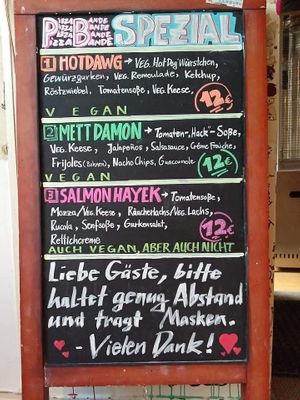 PIZZA BANDE
PIZZA BANDE
PIZZA BANDE
SPEZIAL
1 HOTDAWG → VEG. HOTDOG WÜRSTCHEN,
GEWÜRZGURKEN, VEG. REMOULADE, KETCHUP,
RÖSTZWIEBEL, TOMATENSOßE, VEG. KEESE,
12€
VEGAN
2 METT DAMON → TOMATEN-„HACK"-SOßE,
VEG. KEESE, JALAPEÑOS, SALSASAUCE, CRÈME FRAICHE,
FRIJOLES (BOHNEN), NACHO CHIPS, GUACAMOLE
12€
VEGAN
3 SALMON HAYEK → TOMATENSOßE,
MOZZA/VEG. KEESE, RÄUCHERLACHS/VEG. LACHS,
RUCOLA, SENFSOßE, GURKENSALAT,
RETTICHCREME
12€
AUCH VEGAN, ABER AUCH NICHT
Liebe Gäste, bitte
haltet genug Abstand
und tragt Masken.
- Vielen Dank!